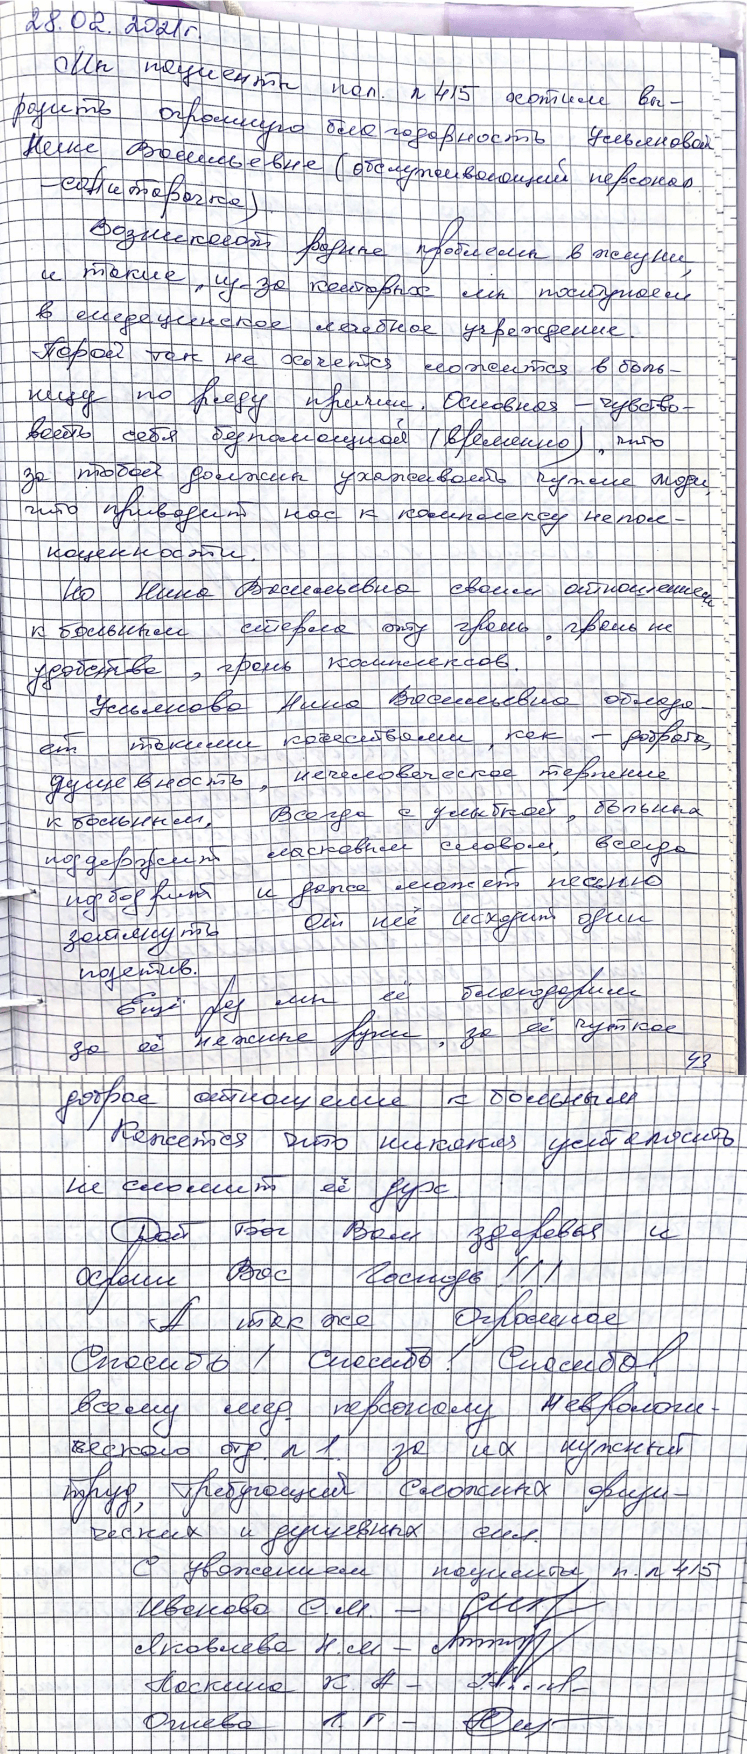 28.02.2021г.
Мы пациенты пал. №415 хотим вы-
разить огромную благодарность Ульяновой
Нине Васильевне (обслуживающий персонал
-санитарочка).
Возникают разные проблемы в жизни,
и такие, из-за которых мы поступаем
в медецинское лечебное учреждение.
Порой так не хочется ложится в боль-
ницу по ряду причин. Основная - чувство-
вать себя безпомощной (временно), что
за тобой должны ухаживать чужие люди,
что приводит нас к комплексу непол-
ноценности.
Но Нина Васильевна своим отношением
к больным стерла эту грань, грань не
удобства, грань комплексов.
Ульянова Нина Васильевна облада-
ет такими качествами, как - доброта,
душевность, нечеловеческое терпение
к больным. Всегда с улыбкой, больных
поддержит ласковым словом, всегда
подбодрит и даже может песню
затянуть. От неё исходит один
позетив.
Ещё раз мы её благодарим
за её нежные руки, за её чуткое
43
доброе отношение к больным
Кажется что никакая усталость
не сломит её дух.
Дай Бог Вам здоровья и
храни Вас Господь!!!
А так же Огромное
Спасибо! Спасибо! Спасибо!
всему мед. персоналу Неврологи-
ческого отд. №1. за их нужный
труд, требующий сложных физи-
ческих и душевных сил.
С уважением пациенты п. №415
Иванова С.М. -
Яковлева Н.М -
Паскина К. А -
Ошева Л. Г -